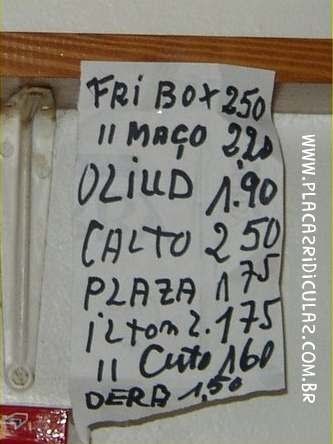 FRI BOX 250
II MAÇO 2,20
OLIUD 1.90
CALTO 2 50
PLAZA 1 75
iLtom L. 175
II Cuto 160
DERB 1,50
WWW.PLACASRIDICULAS.COM.BR